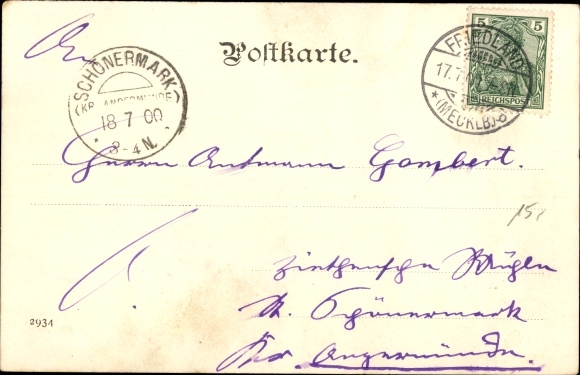 An
Postkarte.
5 5
REICHSPOST
FRIEDLAND
17.7
* (MECKLB.) *
SCHÖNERMARK
(KR. ANGERMÜNDE)
18 7 00
3-4 N.
Herrn Amtmann Gombert.
15,
Ziethensche Mühle
b. Schönermark
2931
Kr. Angermünde.